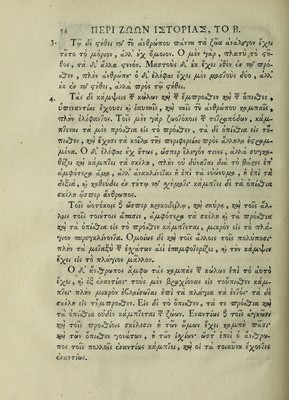 14 ΠΕΡΙ ΖΩΩΝ ΙΣΤΟΡΙΑΣ, ΤΟ Β.
3. Τῷ δὲ στήθει τῷ τοῦ ἀνθρώπου πάντα τὰ ζῷα ἀνάλογον ἔχει
τοῦτο τὸ μόριον, ἀλλ' οὐχ ὅμοιον. Ὁ μὲν γὰρ, πλατὺ τὸ στῆ-
θος, τὰ δ' ἄλλα στενόν. Μαστοὺς δ' οὐκ ἔχει οὐθὲν ἐν τῷ πρό-
σθεν, πλὴν ἄνθρωπος· ὁ δ' ἐλέφας ἔχει μὲν μαστοὺς δύο, ἀλλ'
οὐκ ἐν τῷ στήθει, ἀλλὰ πρὸς τῷ στήθει.
4. Τὰς δὲ κάμψεις τῶν κώλων καὶ τῶν ἔμπροσθεν καὶ τῶν ὄπισθεν,
ὑπεναντίας ἔχουσι καὶ ἑαυταῖς, καὶ ταῖς τοῦ ἀνθρώπου καμπαῖς,
πλὴν ἐλέφαντος. Τοῖς μὲν γὰρ ζωοτόκοις τῶν τετραπόδων, κάμ-
πτεται τὰ μὲν πρόσθια εἰς τὸ πρόσθεν, τὰ δὲ ὀπίσθια εἰς τοὔ-
πισθεν, καὶ ἔχουσι τὰ κοῖλα τῆς περιφερείας πρὸς ἄλληλα ἐστραμ-
μένα. Ὁ δ' ἐλέφας οὐχ οὕτως, ὥσπερ ἔλεγόν τινες, ἀλλὰ συγκα-
θίζει καὶ κάμπτει τὰ σκέλη, πλὴν οὐ δύναται διὰ τὸ βάρος ἐπ'
ἀμφότερα ἅμα, ἀλλ' ἀνακλίνεται ἢ ἐπὶ τὰ εὐώνυμα, ἢ ἐπὶ τὰ
δεξιά, καὶ καθεύδει ἐν τούτῳ τῷ σχήματι· κάμπτει δὲ τὰ ὀπίσθια
σκέλη ὥσπερ ἄνθρωπος.
Τοῖς ᾠοτόκοις δὲ ὥσπερ κροκοδείλῳ, καὶ σαύρᾳ, καὶ τοῖς ἄλ-
λοις τοῖς τοιούτοις ἅπασιν, ἀμφότερα τὰ σκέλη καὶ τὰ πρόσθια
καὶ τὰ ὀπίσθια εἰς τὸ πρόσθεν κάμπτεται, μικρὸν εἰς τὸ πλά-
γιον παρεγκλίνοντα. Ὁμοίως δὲ καὶ τοῖς ἄλλοις τοῖς πολύποσι·
πλὴν τὰ μεταξὺ τῶν ἐσχάτων ἀεὶ ἐπαμφοτερίζει, καὶ τὴν κάμψιν
ἔχει εἰς τὸ πλάγιον μᾶλλον.
Ὁ δ' ἄνθρωπος ἄμφω τὰς καμπὰς τῶν κώλων ἐπὶ τὸ αὐτὸ
ἔχει, καὶ ἐξ ἐναντίας· τοὺς μὲν βραχίονας εἰς τοὔπισθεν κάμπ-
τει, πλὴν μικρὸν ἐβλαίσωται ἐπὶ τὰ πλάγια τὰ ἐντός· τὰ δὲ
σκέλη εἰς τοὔμπροσθεν. Εἰς δὲ τὸ ὄπισθεν, τά τε πρόσθια καὶ
τὰ ὀπίσθια οὐδὲν κάμπτεται τῶν ζῴων. Ἐναντίως δὲ τοῖς ἀγκῶσι
καὶ τοῖς προσθίοις σκέλεσιν ἡ τῶν ὤμων ἔχει καμπὴ πᾶσι·
καὶ τῶν ὄπισθεν γονάτων, ἡ τῶν ἰσχίων· ὥστ' ἐπεὶ ὁ ἄνθρω-
πος τοῖς πολλοῖς ἐναντίως κάμπτει, καὶ οἱ τὰ τοιαῦτα ἔχοντες
ἐναντίως.